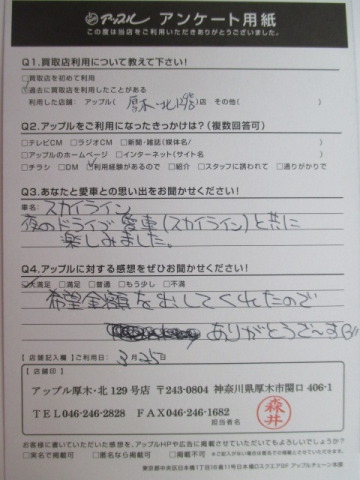 アップル アンケート用紙
この度は当店をご利用いただきありがとうございました。
Q1.買取店利用について教えて下さい!
□買取を初めて利用
☑過去に買取店を利用したことがある
利用した店舗: アップル( 厚木・北129号)店 その他( )
Q2.アップルをご利用になったきっかけは?(複数回答可)
□テレビCM □ラジオCM □新聞・雑誌(媒体名/ )
□アップルのホームページ □インターネット(サイト名 )
□チラシ □DM ☑利用経験があるので □紹介 □スタッフに誘われて □通りがかりで
Q3.あなたと愛車との思い出をお聞かせください!
車名: スカイライン
夜のドライブ 愛車(スカイライン)と共に
楽しみました。
Q4.アップルに対する感想をぜひお聞かせください!
☑大満足 □満足 □普通 □もう少し □不満
希望金額を出してくれたので
ありがとうご〜す
【店舗記入欄】ご利用日: 3月25日
【店舗印】
アップル厚木・北129号店 〒243-0804 神奈川県厚木市関口406-1
TEL046-246-2828 FAX046-246-1682
担当者名 森井
お客様に書いていただいた感想を、アップルHPや広告に掲載させていただいてもよろしいでしょうか?
□実名で掲載可 □匿名なら掲載可 □掲載不可
東京都中央区日本橋1丁目18番11号日本橋DスクエアGF アップルチェーン本部